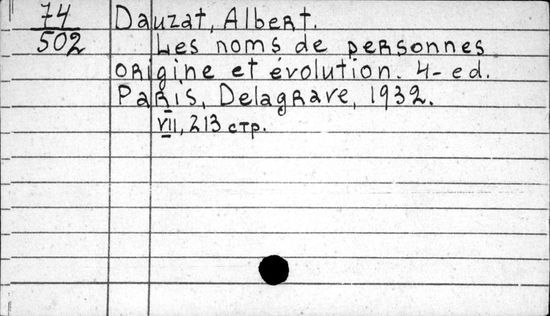 74 Dauzat, Albert.
502 Les noms de personnes
origine et évolution. 4-ed.
Paris, Delagrave, 1932.
VII, 213 стр.